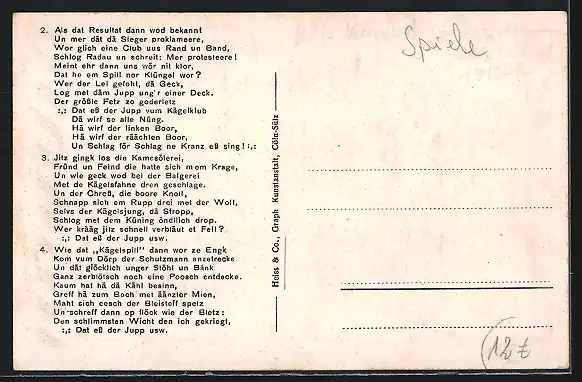 2. Als dat Resultat dann wod bekannt
Un mer dät dä Sieger proklameere,
Wor glich eine Club uus Rand un Band,
Schlog Radau un schreit: Mer protesteere!
Meint ehr dann uns wör nit klor,
Dat he em Spill nor Klüngel wor?
Wer der Lei gefoht, dä Geck,
Log met däm Jupp ung'r einer Deck.
Der größte Fetz zo goderletz
:,: Dat eß der Jupp vum Kägelklub
Dä wirf se alle Nüng.
Hä wirf der linken Boor,
Hä wirf der räächten Boor,
Un Schlag för Schlag ne Kranz eß sing! :,:
3. Jitz gingk los die Kamesölerei,
Fründ un Feind die hatte sich mem Krage,
Un wie geck wod bei der Balgerei
Met de Kägelsfahne dren geschlage.
Un der Chreß, die boore Knoll,
Schnapp sich em Rupp drei met der Wolf,
Selvs der Kägelsjung, dä Stropp,
Schlog met dem Küning öndlich drop.
Wer krääg jitz schnell verbläut et Fell?
:,: Dat eß der Jupp usw.
4. Wie dat „Kägelspill" dann wor ze Engk
Kom vum Dörp der Schutzmann anzetrecke
Un dät glöcklich unger Stöhl un Bänk
Ganz zerblötsch noch eine Poosch entdecke.
Kaum hat hä dä Kähl besinn,
Greff hä zum Boch met äänzler Mien,
Maht sich eesch der Bleisteff spetz
Un schreff dann op flöck wie der Bletz:
Den schlimmsten Wicht den ich gekriegt,
:,: Dat eß der Jupp usw.
Heiss & Co., Graph Kunstanstalt, Cöln-Sülz
Spiele
12,-